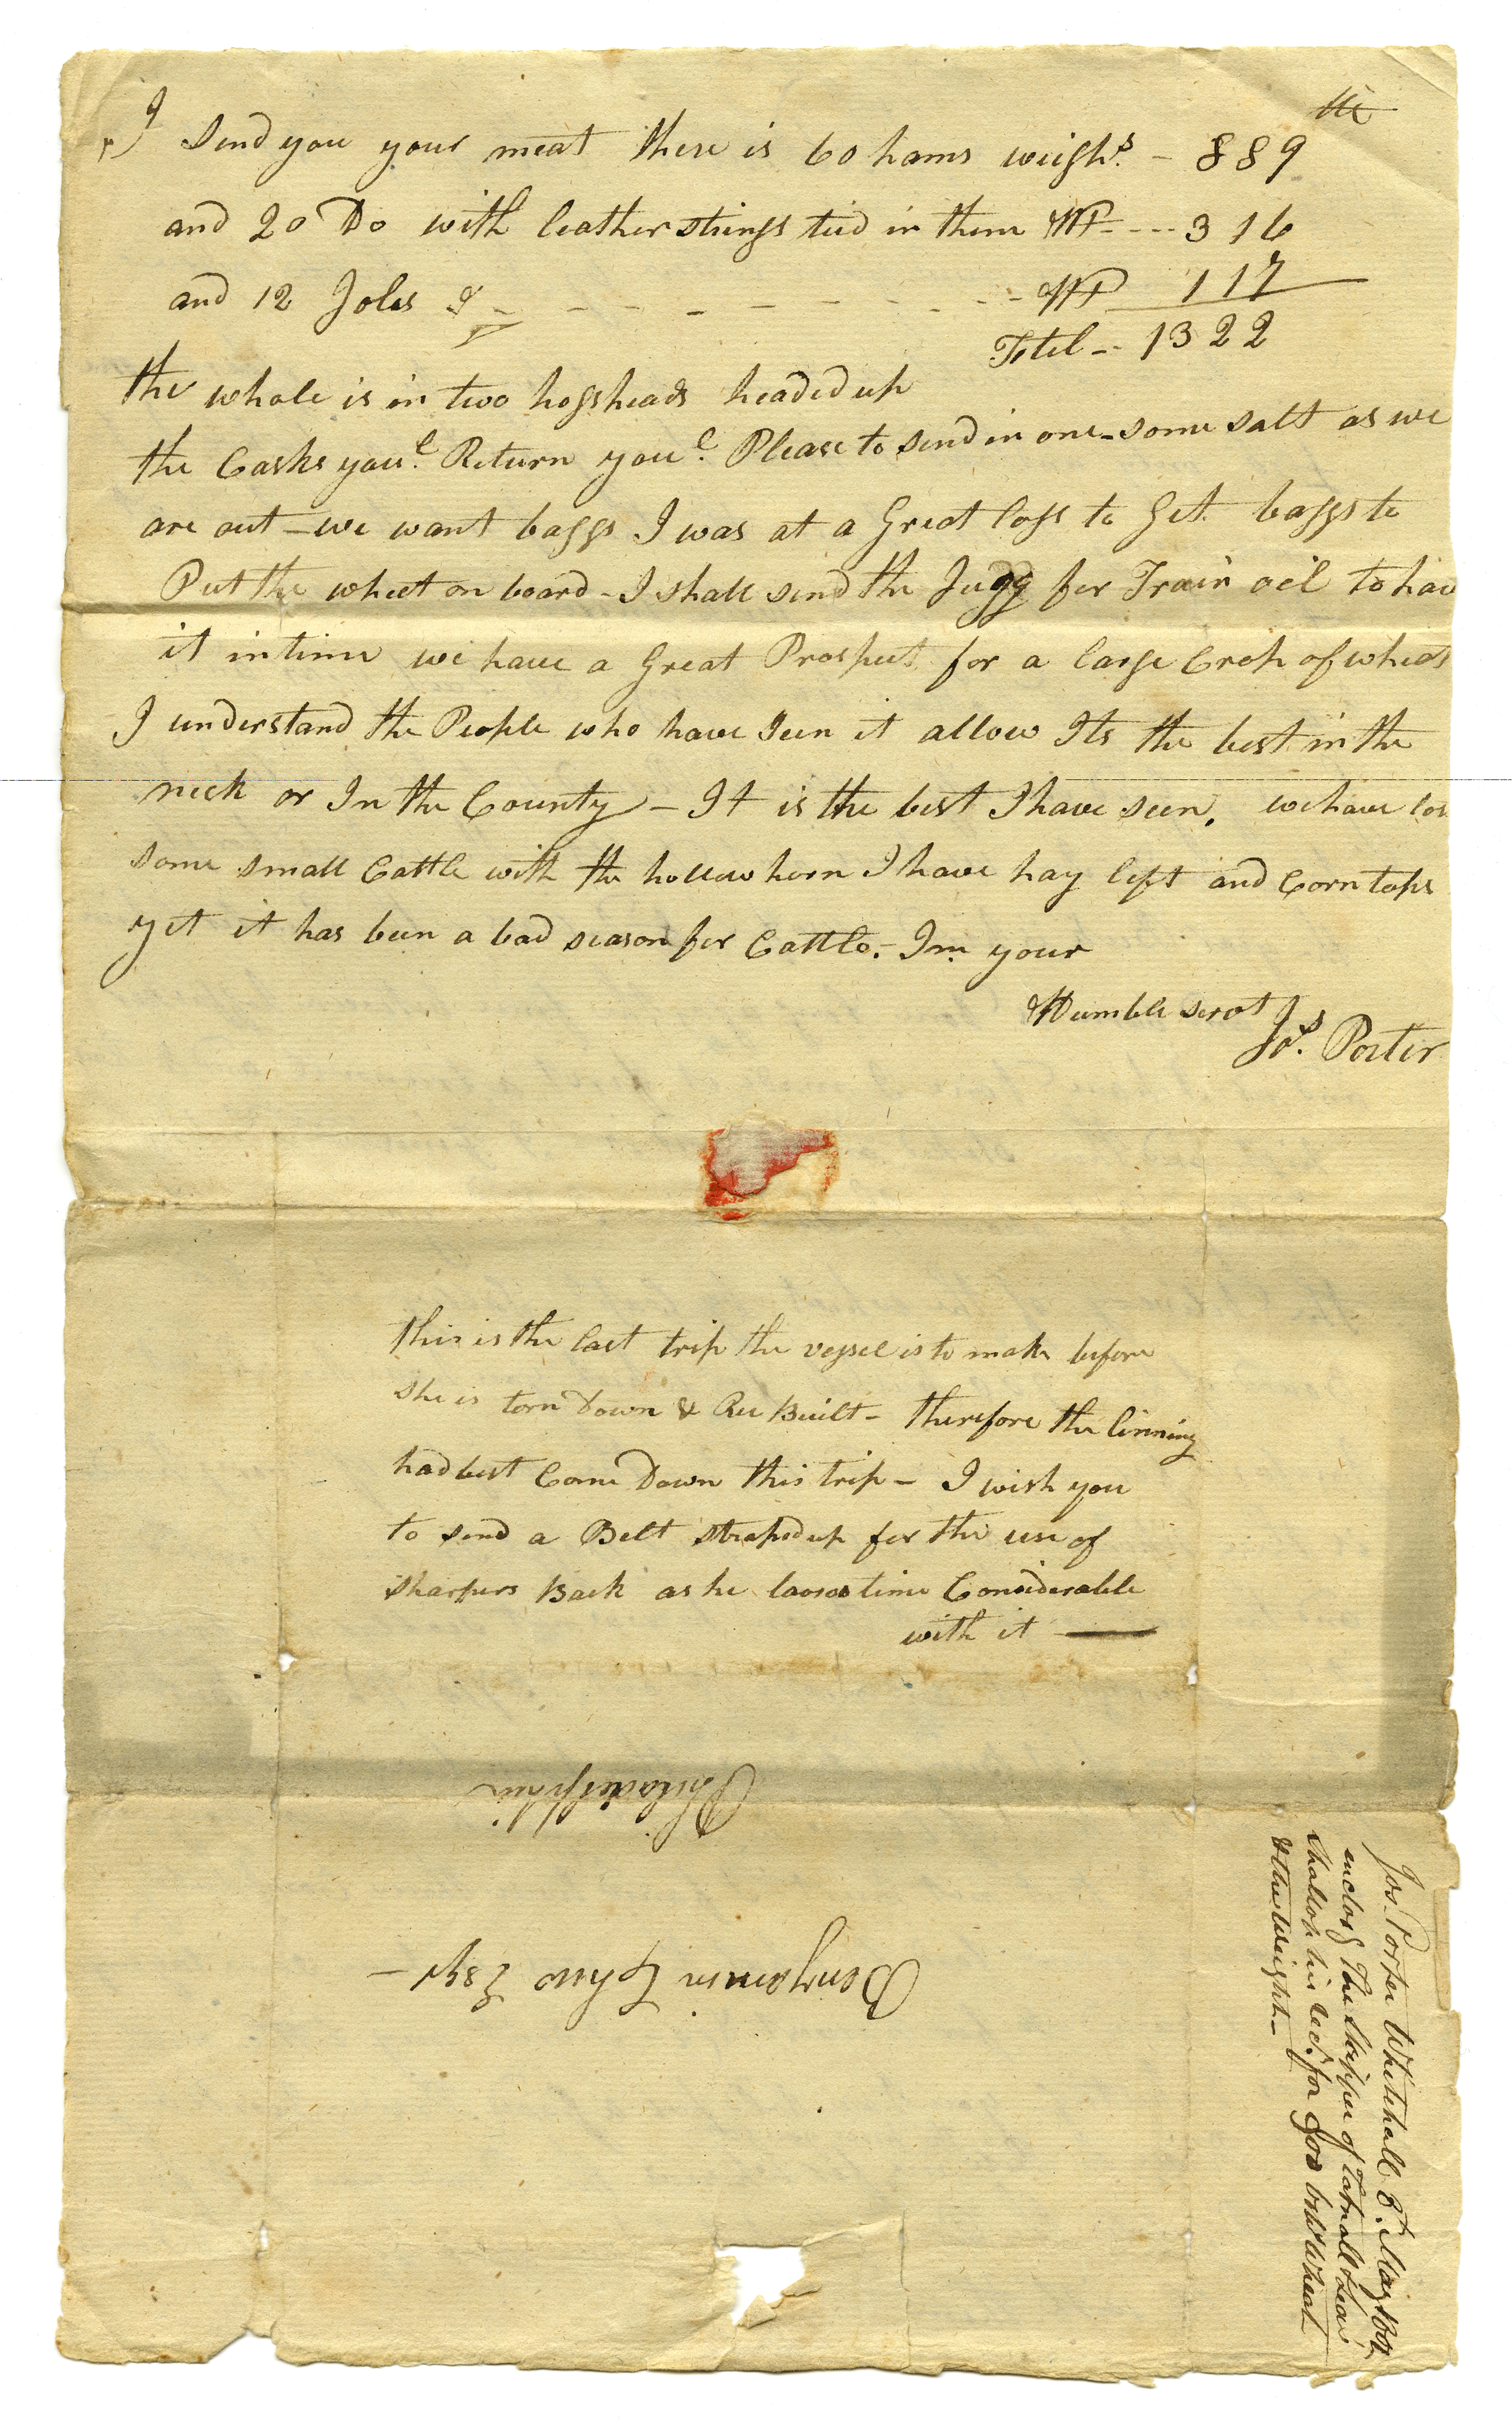 I send you your meat there is 60 hams weighs. - 889
and 20 Do with leather strings tied in them Wt - - - - 316
and 12 Joles - - - - - - - - Wt 117
Totel - - 1322
the whole is in two hogsheads headed up
the Casks youl. Return youl. Please to send in one - some salt as we
are out - we want baggs I was at a Great loss to Get baggs to
Put the wheet on board - I shall send the Jugg for Train oil to hav
it in time we have a Great Prospect for a large Crop of wheat
I understand the People who have seen it allow Its the best in the
neck or In the County - It is the best I have seen. we have los
some small Cattle with the hollow horn I have hay left and Corn tops
yet it has been a bad season for Cattle. - Im your
Humble servt
Jos. Porter
this is the last trip the vessel is to make before
she is torn Down & Ree Built - therefore the linning
had best Come Down this trip - I wish you
to send a Belt straped up for the use of
sharpers Back as he looses time Considerable
with it
Philadelphia
Benjamin Chew Esqr -
Jos. Porter Whitehall 8t. May
enclosg The skipper of Tatnall & Leas
shallop his rect. for bus Wheat
& the Weight -